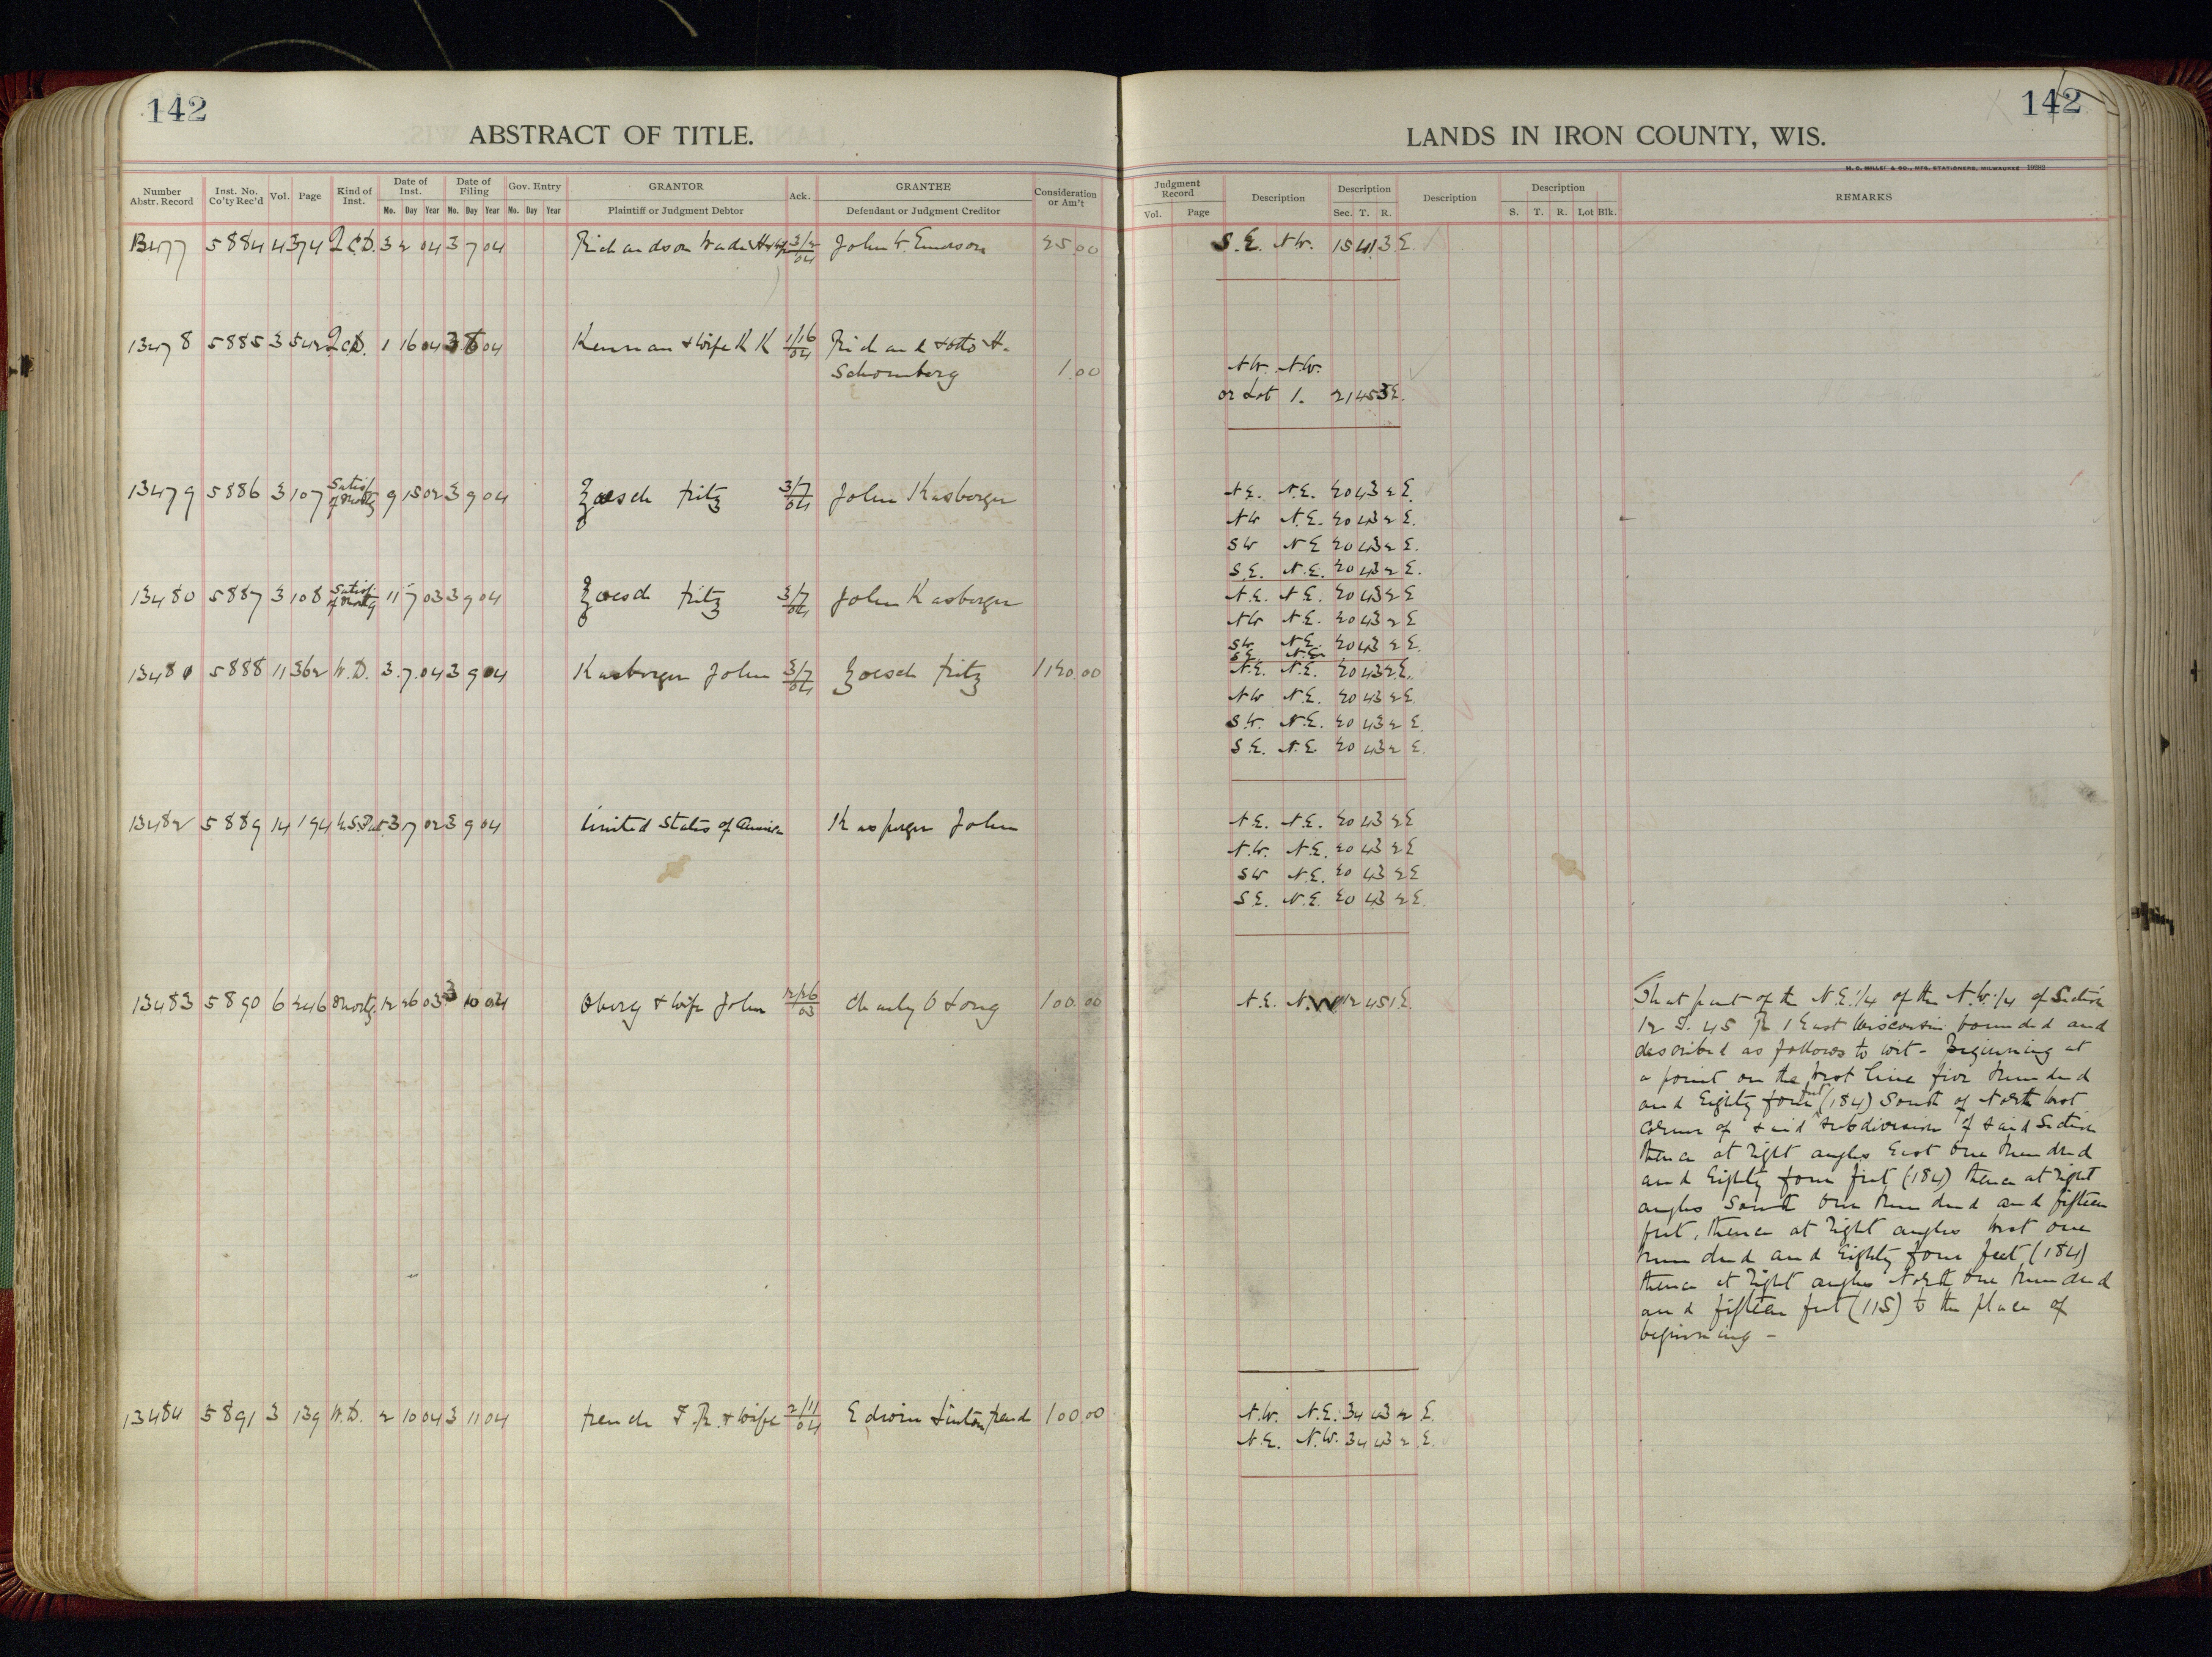 142
ABSTRACT OF TITLE.
Number Abstr. Record | Inst. No. Co'ty Rec'd | Vol. | Page | Kind of Inst. | Date of Inst. Mo. Day Year | Date of Filing Mo. Day Year | Gov. Entry Mo. Day Year | GRANTOR Plaintiff or Judgment Debtor | Ack. | GRANTEE Defendant or Judgment Creditor | Consideration or Am't
13477 5884 4 374 Q.C.D. 3 2 04 3 7 04 Richardson Wade H 3/2/04 John W. Emerson 25.00
13478 5885 3 542 Q.C.D. 1 16 04 3 8 04 Kennan & wife K K 1/16/04 Richard & Otto H.
Schomberg 1.00
13479 5886 3 107 Satisf. of Mortg 9 15 02 3 9 04 Zoesch Fritz 3/7/04 John Kasberger
13480 5887 3 108 Satisf. of Mortg 11 7 03 3 9 04 Zoesch Fritz 3/7/04 John Kasberger
13481 5888 11 362 W.D. 3 7 04 3 9 04 Kasberger John 3/7/04 Zoesch Fritz 1120.00
13482 5889 14 194 U.S. Pat. 3 17 02 3 9 04 United States of America Kasperger John
13483 5890 6 246 Mortg. 12 26 03 3 10 04 Oberg & Wife John 12/26/03 Charley O Long 100.00
13484 5891 3 139 W.D. 2 10 04 3 11 04 French F. R. & wife 2/11/04 Edwin Linton French 100.00
142
LANDS IN IRON COUNTY, WIS.
H. C. MILLER & CO., MFG. STATIONERS, MILWAUKEE
Judgment Record Vol. Page | Description | Description Sec. T. R. | Description | Description S. T. R. Lot Blk. | REMARKS
S.E. N.W. 15 41 3 E.
N.W. N.W.
or Lot 1. 21 45 3 E.
N.E. N.E. 20 43 2 E.
NW N.E. 20 43 2 E.
SW N E 20 43 2 E.
S.E. N.E. 20 43 2 E.
N.E. N.E. 20 43 2 E
NW N.E. 20 43 2 E
SW. N.E. 20 43 2 E.
S.E. N.E.
N.E. N.E. 20 43 2 E.
NW N.E. 20 43 2 E.
S.W. N.E. 20 43 2 E.
S.E. N.E 20 43 2 E.
N.E. N.E. 20 43 2 E
N.W. N.E. 20 43 2 E
SW N.E. 20 43 2 E
S.E. N.E. 20 43 2 E.
N.E. N.W 12 45 1 E.
That part of the N.E. 1/4 of the N.W. 1/4 of Section
12 T. 45 R 1 East Wisconsin bounded and
described as follows to wit - Beginning at
a point on the West line five hundred
and Eighty four feet (184) South of North West
corner of said subdivision of said Section
thence at right angles East one hundred
and Eighty four feet (184) thence at right
angles South one hundred and fifteen
feet, thence at right angles West one
hundred and Eighty four feet (184)
thence at right angles North one hundred
and fifteen feet (115) to the place of
beginning -
N.W. N.E. 34 43 2 E.
N.E. N.W. 34 43 2 E.